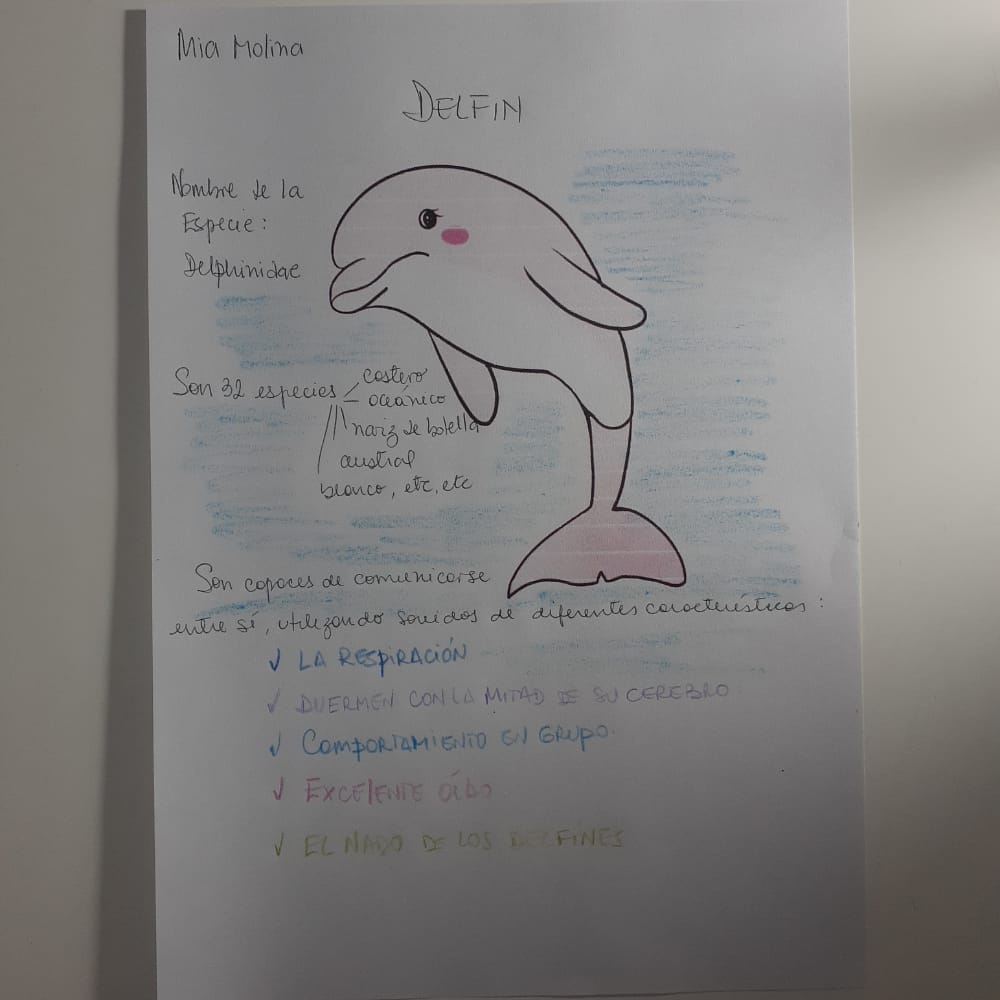 Mia Molina
DELFIN
Nombre de la
Especie:
Delphinidae
Son 32 especies
costero
oceánico
nariz de botella
austral
blanco, etc, etc
Son capaces de comunicarse
entre sí, utilizando sonidos de diferentes características:
✓ LA RESPIRACIÓN
✓ DUERMEN CON LA MITAD DE SU CEREBRO
✓ COMPORTAMIENTO EN GRUPO.
✓ EXCELENTE OÍDO
✓ EL NADO DE LOS DELFINES